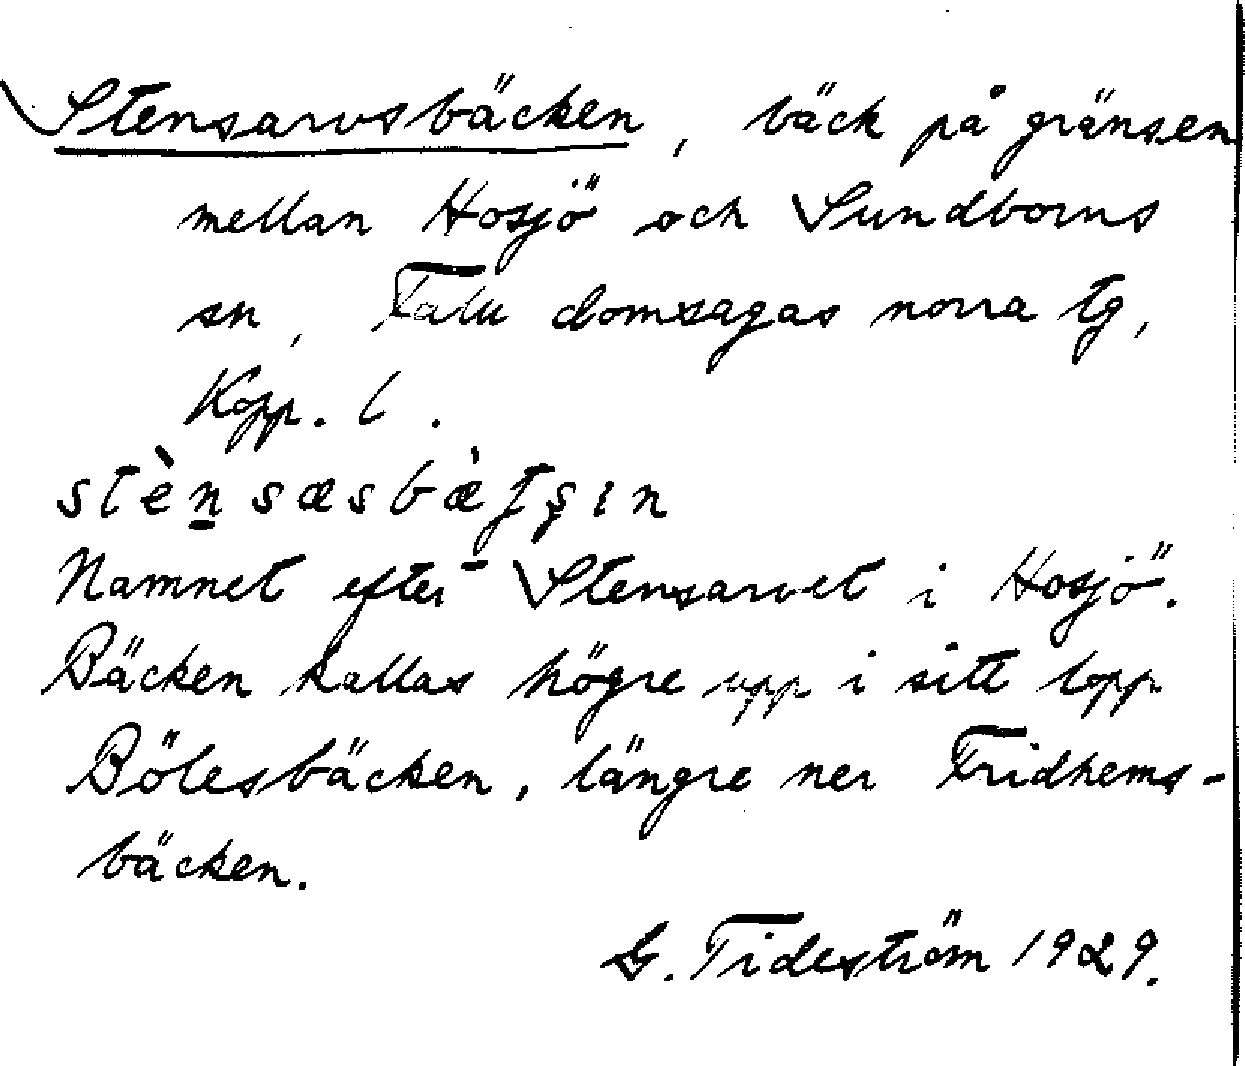 Stensarvsbäcken, bäck på gränsen
mellan Hosjö och Sundborns
sn, Falu domsagas norra tg,
Kopp. l.
stènsæsbætʂın
Namnet efter Stensarvet i Hosjö.
Bäcken kallas högre upp i sitt lopp
Bölesbäcken, längre ner Fridhems-
bäcken.
G. Tideström 1929.